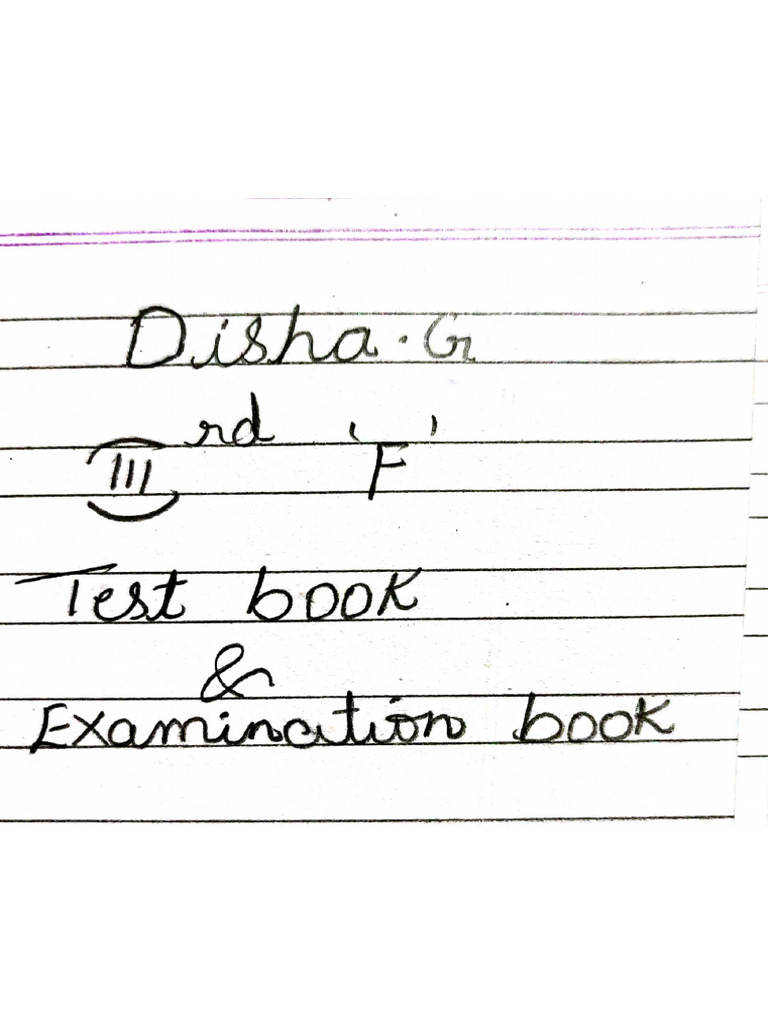 Disha. G
III rd 'F'
Test book
&
Examination book